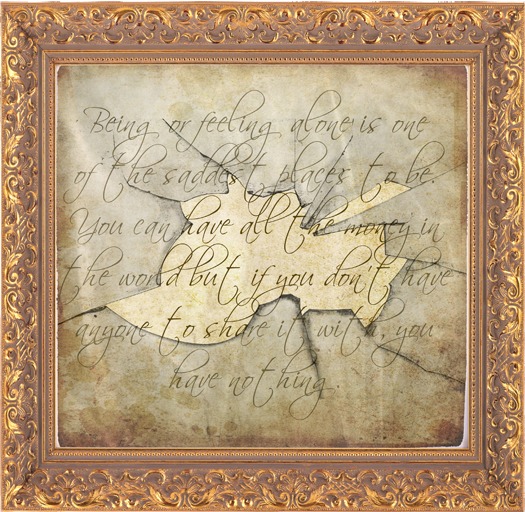 Being or feeling alone is one
of the saddest places to be.
You can have all the money in
the world but if you don't have
anyone to share it with, you
have nothing.